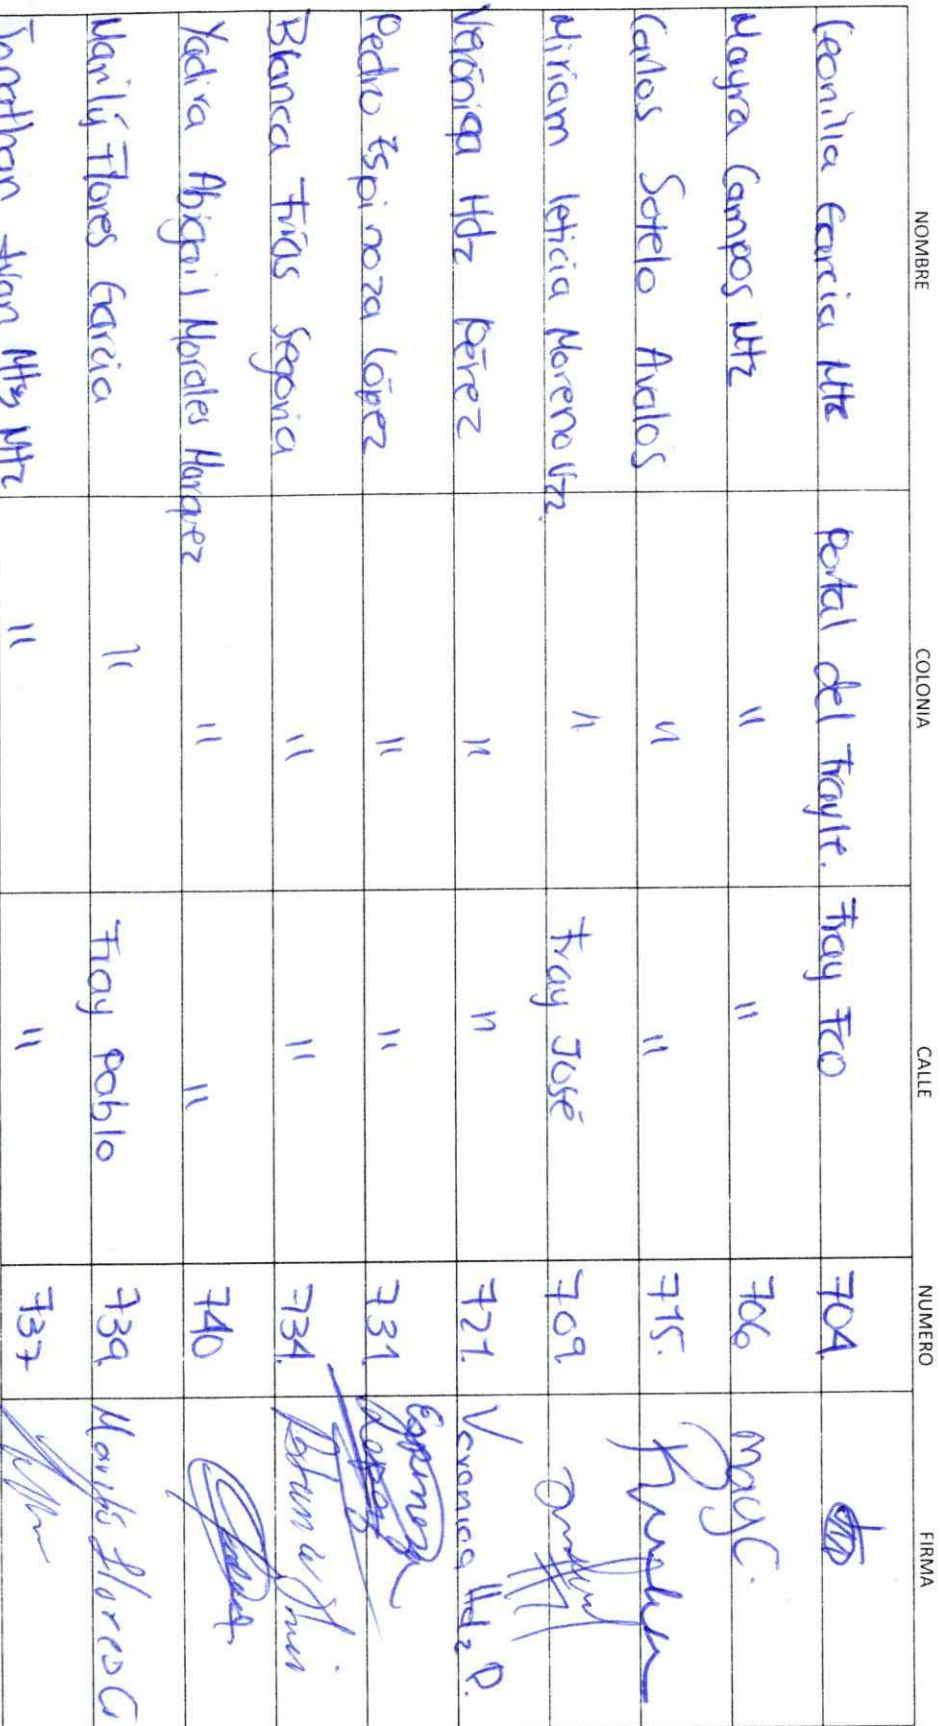 NOMBRE COLONIA CALLE NUMERO FIRMA
Leonilla García Mtz portal del Frayle. Fray FCO 704
Mayra Campos Mtz " " 706 May C.
Carlos Sotelo Avalos " " 715.
Miriam leticia Moreno Vzz. " Fray José 709
Verónica Hdz Pérez " " 721. Veronica Hdz P.
Pedro Espinoza López " " 731 Espinoza López
Blanca Frías Segovia " " 734.
Yadira Abigail Morales Marquez " " 740
Marilú Flores García " Fray Pablo 739 Marilú Flores G
Jonathan Ivan Mtz Mtz " " 737